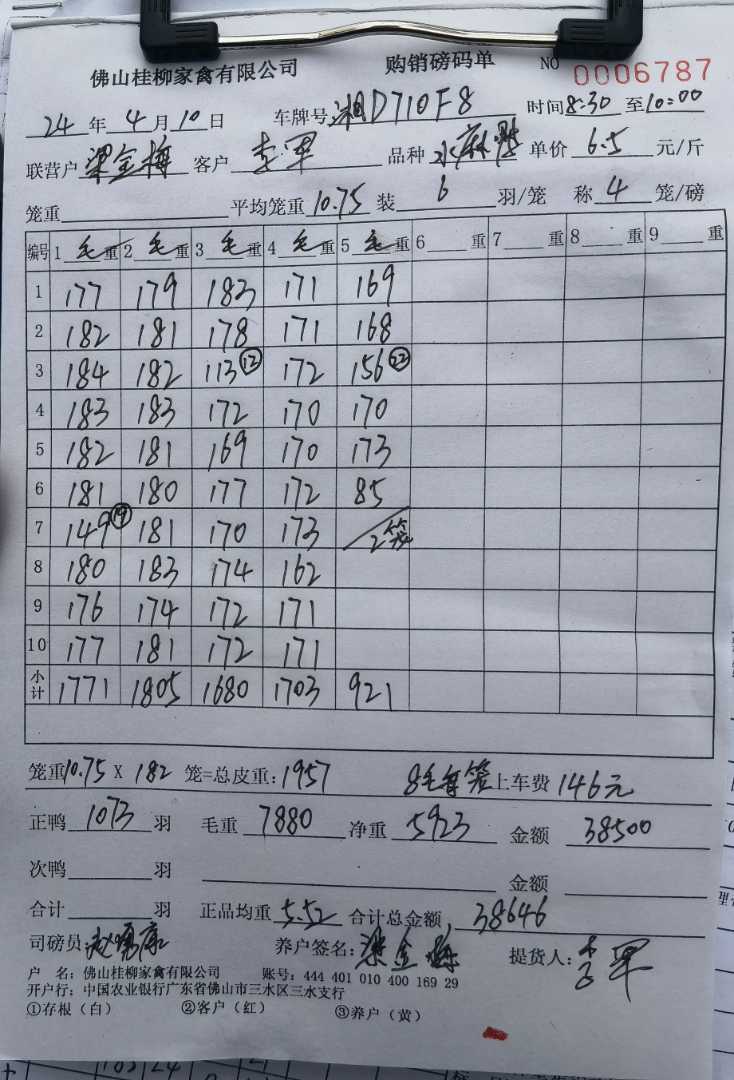 佛山桂柳家禽有限公司 购销磅码单 NO 0006787
24年4月10日 车牌号湘D710F8 时间8:30至10:00
联营户梁金梅 客户李军 品种水麻鸭 单价6.5元/斤
笼重 平均笼重10.75装6羽/笼 称4笼/磅
编号 1毛重 2毛重 3毛重 4毛重 5毛重 6重 7重 8重 9重
1 177 179 183 171 169
2 182 181 178 171 168
3 184 182 113⑫ 172 156㉒
4 183 183 172 170 170
5 182 181 169 170 173
6 181 180 177 172 85
7 149⑲ 181 170 173 2笼
8 180 183 174 162
9 176 174 172 171
10 177 181 172 171
小计 1771 1805 1680 1703 921
笼重10.75X182笼=总皮重:1957 8毛每笼上车费146元
正鸭1073羽 毛重7880净重5923 金额38500
次鸭羽 金额
合计羽 正品均重5.52合计总金额38646
司磅员:赵 康 养户签名:梁金梅 提货人:李军
户 名:佛山桂柳家禽有限公司 账号:444 401 010 400 169 29
开户行:中国农业银行广东省佛山市三水区三水支行
①存根(白) ②客户(红) ③养户(黄)